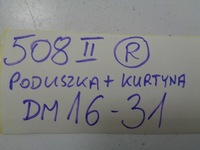 508 II Ⓡ
PODUSZKA + KURTYNA
DM16-31